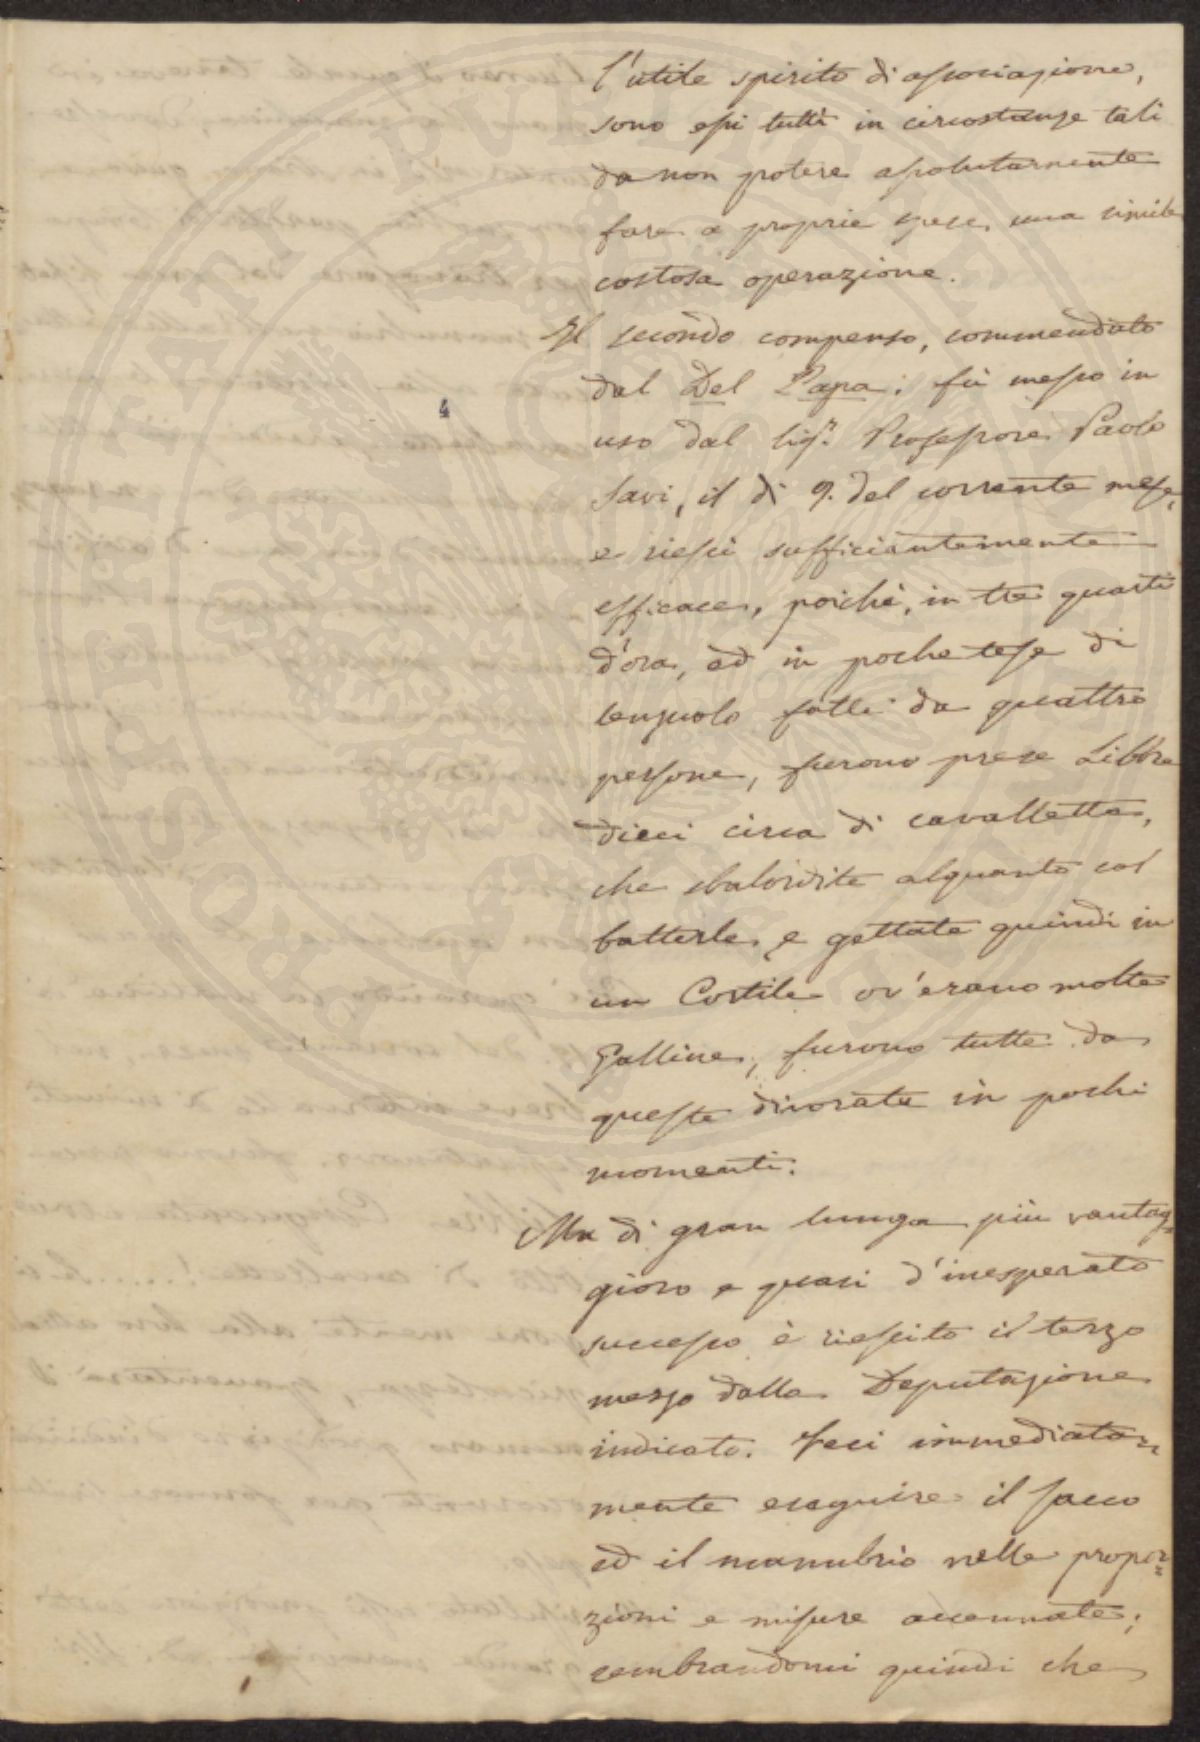 l'utile spirito di associazione,
sono essi tutti in circostanze tali
da non potere assolutamente
fare a proprie spese, una simile
costosa operazione.
Il secondo compenso, commendato
dal Del Papa, fù messo in
uso dal Sigr. Professore Paolo
Savi, il dì 9. del corrente mese,
e riescì sufficientemente
efficace, poichè, in tre quarti
d'ora, ed in poche tese di
lenzuolo fatte da quattro
persone, furono prese Libbre
dieci circa di cavallette,
che sbalordite alquanto col
batterle, e gettate quindi in
un Cortile ov'erano molte
Galline, furono tutte da
queste divorate in pochi
momenti.
Ma di gran lunga più vantag=
gioso e quasi d'inesperato
successo è riescito il terzo
mezzo dalla Deputazione
indicato. Feci immediata=
mente eseguire il sacco
ed il manubrio nelle propor=
zioni e misure accennate;
sembrandomi quindi che
4
POSPERITATI PVBLICAE AVGENDAE